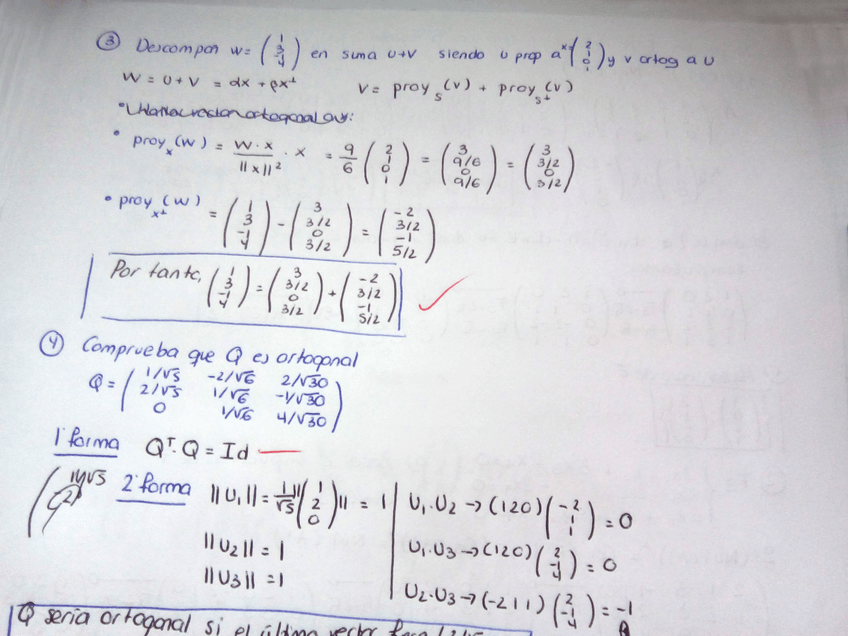 ③ Descompon w = (1 3 -1 4) en suma u+v siendo u prop a x = (2 1 0 1) y v ortog a u
W = U + V = αx + βx⊥ V = proy_S (v) + proy_S⊥ (v)
• proy_x (w) = w · x / ||x||² · x = 9/6 (2 1 0 1) = (3 9/6 0 9/6) = (3 3/2 0 3/2)
• proy_x⊥ (w) = (1 3 -1 4) - (3 3/2 0 3/2) = (-2 3/2 -1 5/2)
Por tanto, (1 3 -1 4) = (3 3/2 0 3/2) + (-2 3/2 -1 5/2)
④ Comprueba que Q es ortogonal
Q = (1/√5 -2/√6 2/√30
2/√5 1/√6 -1/√30
0 1/√6 4/√30)
1ª forma Qᵀ · Q = Id
2ª forma ||U₁|| = 1/√5 ||(1 2 0)|| = 1
||U₂|| = 1
||U₃|| = 1
U₁ · U₂ → (1 2 0) (-2 1 1) = 0
U₁ · U₃ → (1 2 0) (2 -1 4) = 0
U₂ · U₃ → (-2 1 1) (2 -1 4) = -1
Q sería ortogonal si el último vector